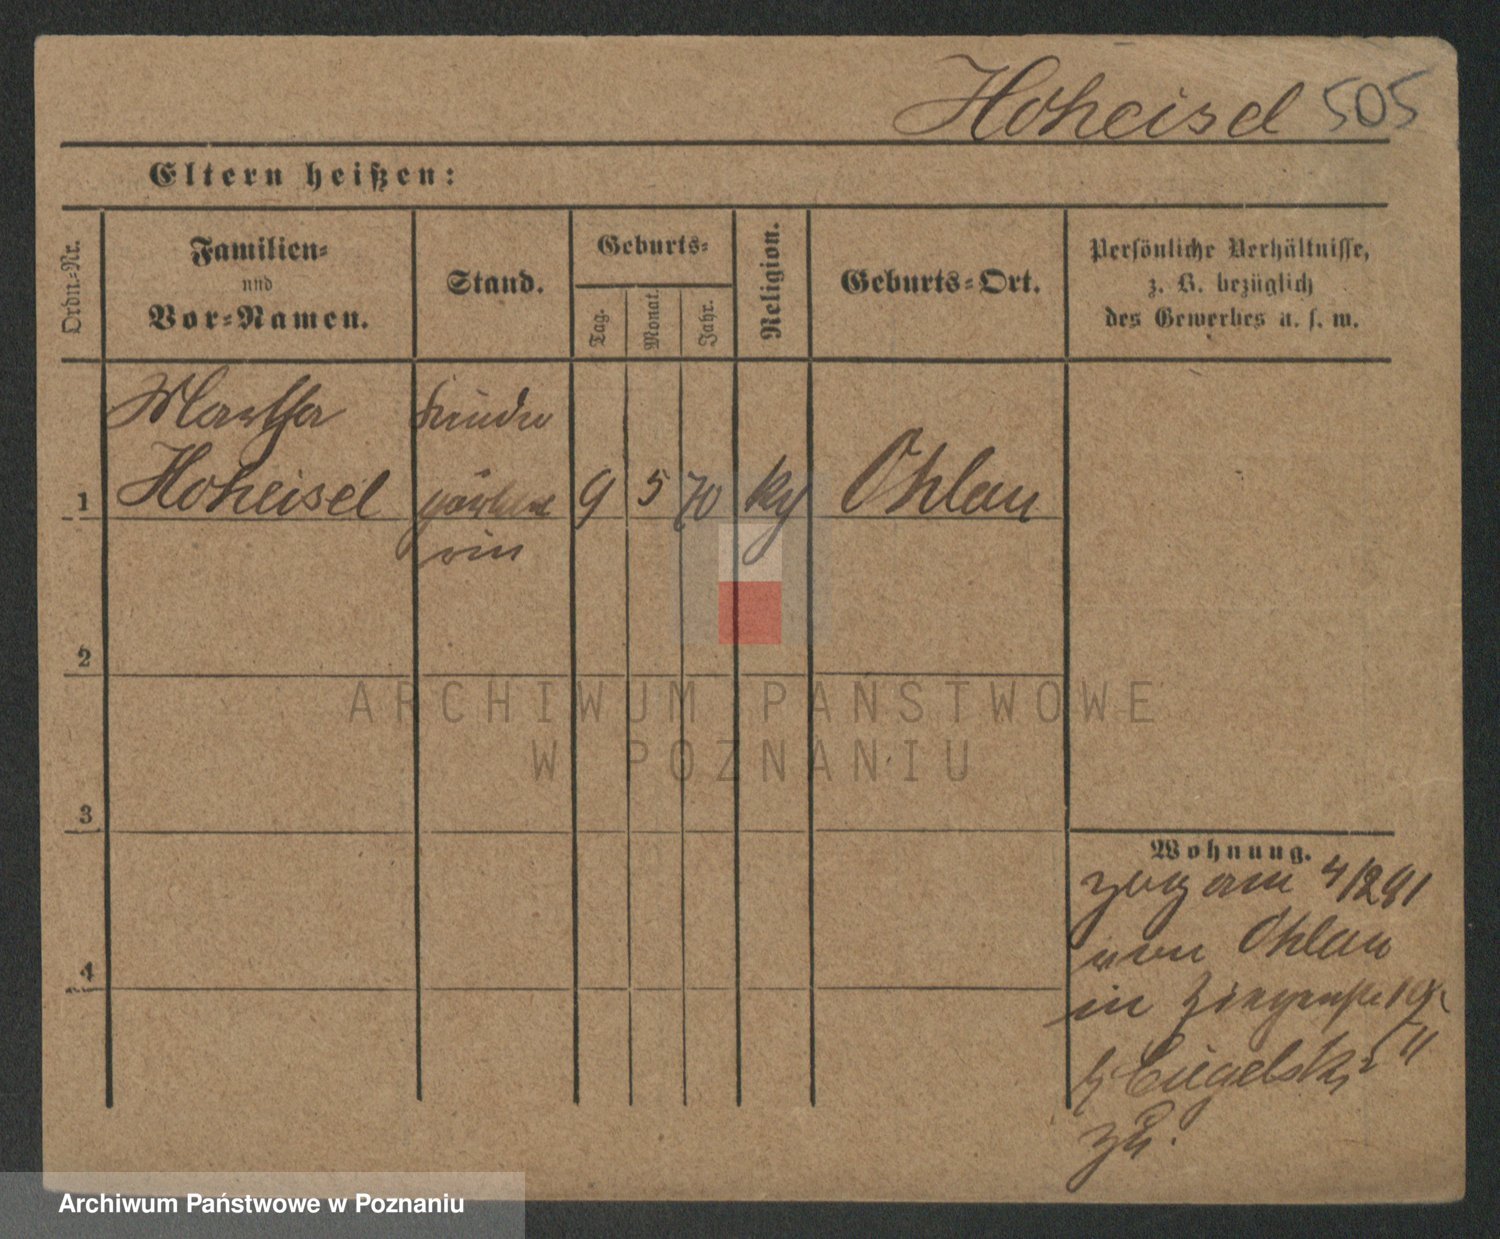 Hoheisel 505
Eltern heißen:
Ordn.=Nr.
Familien=
und
Vor=Namen.
Stand.
Geburts=
Tag.
Monat.
Jahr.
Religion.
Geburts=Ort.
Persönliche Verhältnisse,
z. B. bezüglich
des Gewerbes u. s. w.
Martha Kinder
1 Hoheisel gärtne 9 5 70 kg Ohlau
rin
2
3
4
Wohnung.
zog am 4/2 91
von Ohlau
in 19
zu.
ARCHIWUM PAŃSTWOWE
W POZNANIU
Archiwum Państwowe w Poznaniu